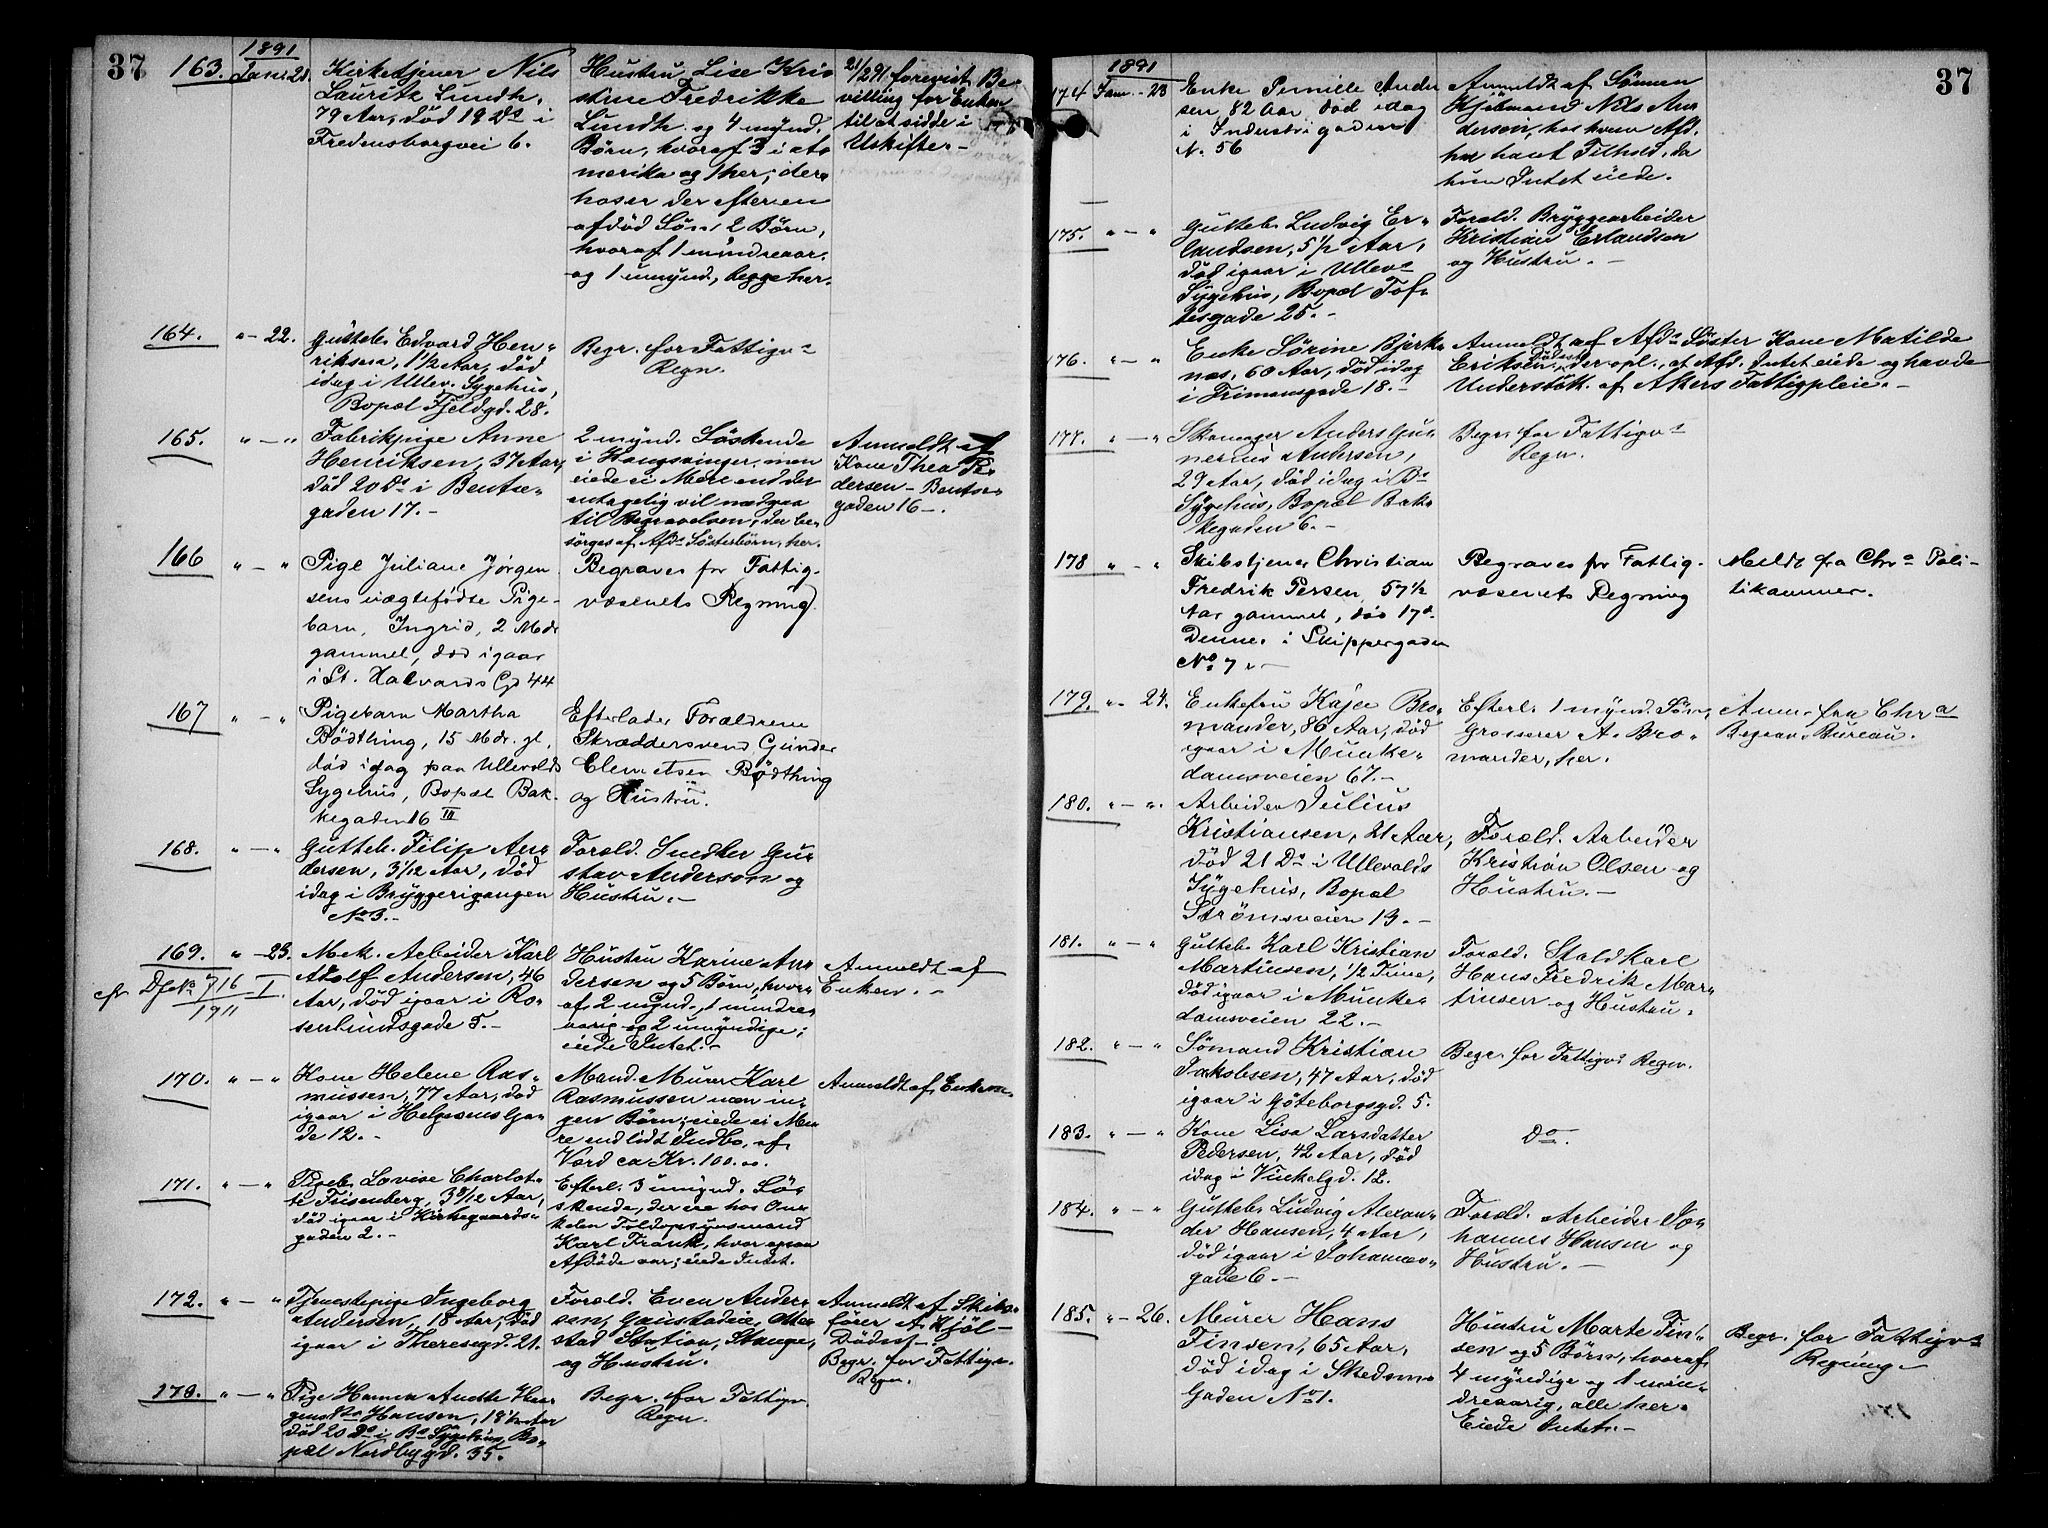 37
1891
163. Jan. 21.
Kirketjener Nils
Lauritz Lundh,
79 Aar, død 19 Ds i
Fredensborgvei 6.
Hustru Lise Kri-
stine Fredrikke
Lundh og 4 mynd.
Børn, hvoraf 3 i A-
merika og 1 her; des-
hoser der efter en
afdød Søn 2 Børn,
hvoraf 1 mindreaar.
og 1 umynd., begge her.
21/2 91 forevist Be-
villing for Enken
til at sidde i
Uskifte. -
164. " - 22.
Guttebn Edvard Hen-
riksen, 1 1/2 Aar, død
idag i Ullev. Sygehus,
Bopæl Fjeldgd. 28.
Begr. for Fattigvs
Regn.
165. " - "
Fabrikpige Anne
Henriksen, 37 Aar,
død 20 Ds i Bentse-
gaden 17. -
2 mynd. Søskende
i Kongsvinger, men
eiede ei Mere end der
antagelig vil medgaa
til Begravelsen, der be-
sørges af Afds Søsterbørn, her.
Anmeldt af
Kone Thea Pe-
dersen - Bentse-
gaden 16 -.
166 " - "
Pige Juliane Jørgen
sens uægtefødte Pige-
barn, Ingrid, 2 Mdr
gammel, død igaar
i St. Halvards Gd 44
Begraves for Fattig-
væsenets Regning.
167 " - "
Pigebarn Martha
Bødthing, 15 Mdr. gl.,
død idag paa Ullevolds
Sygehus, Bopæl Bak-
kegaden 16 III
Efterlader Forældrene
Skræddersvend Gunder
Clemetsen Bødthing
og Hustru.
168. " - "
Guttebn. Filip An-
dersen, 3 1/12 Aar, død
idag i Bryggerigangen
No 3. -
Foræld. Smelter Gu-
stav Anderson og
Hustru. -
169. " - 23.
cfr DJ No 716 I
1911
Mek. Arbeider Karl
Adolf Andersen, 46
Aar, død igaar i Ro-
senlundsgade 5. -
Hustru Karine An-
dersen og 5 Børn, hvor-
af 2 mynd., 1 mindre-
aarig og 2 umyndige;
eiede Intet. -
Anmeldt af
Enken. -
170. " - "
Kone Helene Ras-
mussen, 77 Aar, død
igaar i Helgesens Ga-
de 12. -
Mand Murer Karl
Rasmussen men in-
gen Børn; eiede ei Me-
re end lidt Indbo, af
Værd ca Kr. 100.00.
Anmeldt af Enkem.
171. " - "
Pigeb. Lovise Charlot-
te Frisenberg, 3 8/12 Aar,
død igaar i Kirkegaards-
gaden 2. -
Efterl. 3 umynd. Sø-
skende, der ere hos On-
kelen Toldopsynsmand
Karl Frank, hvor ogsaa
Afdøde var; eiede Intet.
172. " - "
Tjenestepige Ingeborg
Andersen, 18 Aar, død
igaar i Theresegd. 21.
Foræld. Even Ander-
sen, Otte-
stad Station, Stange,
og Hustru.
Anmeldt af Skibs-
fører A. Kjøl-
Dødsst -.
Begr. for Fattigv.
Regn.
173. " - "
Pige Hanna Anette
Hansen, 18 Aar
død 20 Ds i Bs Sygehus, Bo-
pæl Nordbygd. 35.
Begr. for Fattigv.
Regn.
37
1891
174 Jan. - 23
Enke Pernille Ander
sen, 82 Aar død idag
i Industrigaden
N. 56
Anmeldt af Sønnen
Kjøbmand Nils An-
dersen, hos hvem Afd.
har havt Tilhold, da
hun Intet eiede.
175. " - "
Guttebn Ludvig Er-
landsen, 5 1/2 Aar,
død igaar i Ullevs
Sygehus, Bopæl Tof-
tesgade 25. -
Foræld. Bryggearbeider
Kristian Erlandsen
og Hustru. -
176. " - "
Enke Sørine Bjerke-
næs, 60 Aar, død idag
i Frimansgade 18. -
Anmeldt af Afds Søster Kone Matilde
Eriksen, Dødsst., der opl., at Afd. Intet eiede og havde
Understøtt. af Akers Fattigpleie. -
177. " - "
Skomager Anders Gun-
nerius Andersen,
29 Aar, død idag i Bs
Sygehus, Bopæl Bak-
kegaden 6. -
Begr. for Fattigvs
Regn.
178 " - "
Skibstjener Christian
Fredrik Persen 57 1/2
Aar gammel, død 17d
Dennes i Skippergaden
No 7. -
Begraves for Fattig-
væsenets Regning
Meldt fra Chra Poli-
tikammer.
179. " - 24.
Enkefru Kaja Bro-
mander, 86 Aar, død
igaar i Munke-
damsveien 67. -
Efterl. 1 mynd. Søn,
Grosserer A. Bro-
mander, her.
Anm. fra Chra
Begrav. Bureau.
180. " - "
Arbeider Julius
Kristiansen, 21 Aar,
død 21 Ds i Ullevolds
Sygehus, Bopæl
Strømsveien 13. -
Foræld. Arbeider
Kristian Olsen og
Hustru. -
181. " - "
Guttebn Karl Kristian
Martinsen, 1/2 Time,
død igaar i Munke-
damsveien 22. -
Foræld. Staldkarl
Hans Fredrik Mar-
tinsen og Hustru.
182. " - "
Sømand Kristian
Jakobsen, 47 Aar, død
igaar i Göteborgsgd. 5.
Begr. for Fattigvs Regn.
183. " - "
Kone Lisa Larsdatter
Pedersen, 42 Aar, død
idag i Vinkelgd. 12.
Do.
184. " - "
Guttebn Ludvig Alexan-
der Hansen, 4 Aar,
død igaar i Johannes-
gade 6. -
Foræld. Arbeider Jo-
hannes Hansen og
Hustru. -
185. " - 26.
Murer Hans
Finsen, 65 Aar,
død idag i Skedsmo-
Gaden No 1.
Hustru Marte Fin-
sen og 5 Børn, hvoraf
4 myndige og 1 min-
dreaarig, alle her.
Eiede Intet. -
Begr. for Fattigvs
Regning -